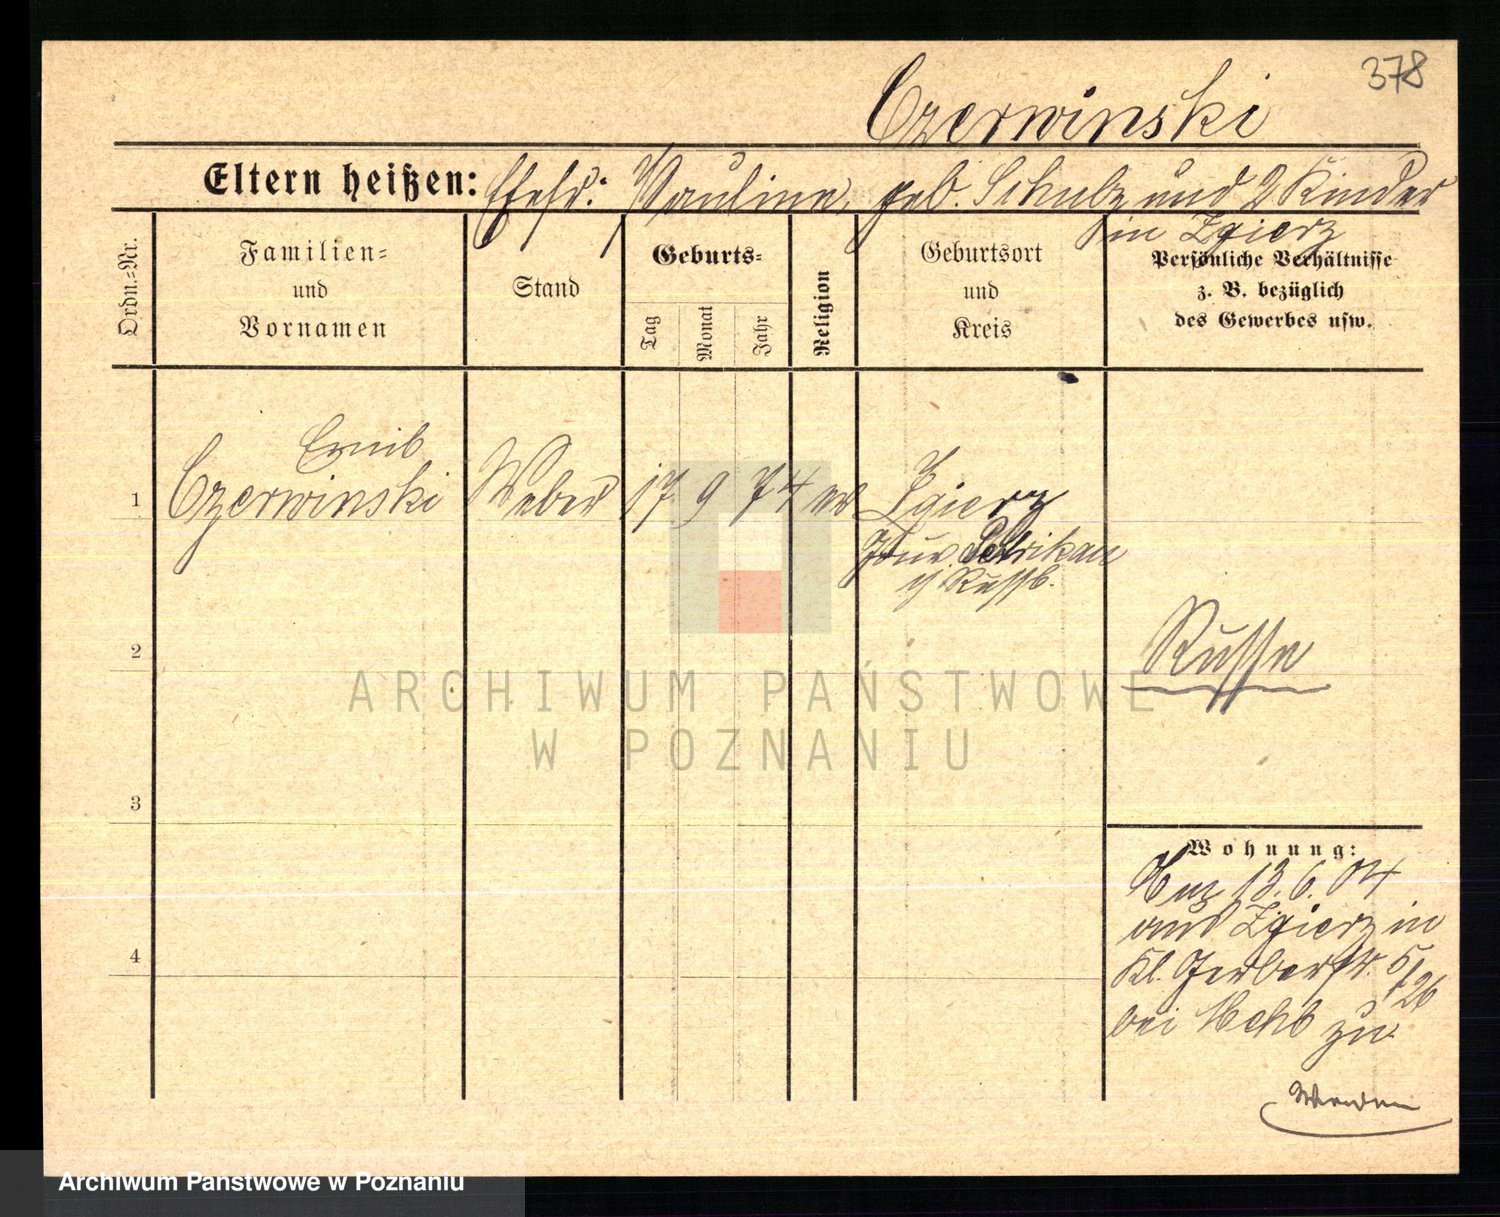 378
Czerwinski
Eltern heißen: Ehefr: Pauline, geb. Schulz und 2 Kinder
in Zgierz
Ordn.-Nr.
Familien-
und
Vornamen
Stand
Geburts-
Tag
Monat
Jahr
Religion
Geburtsort
und
Kreis
Persönliche Verhältnisse
z. B. bezüglich
des Gewerbes usw.
Emil
1 Czerwinski Weber 17 9 74 ev Zgierz
Gouv. Petrikau
i/ Russl.
2
Russe
3
Wohnung:
13. 6. 04
aus Zgierz in
Kl. Gerberstr. 5/26
bei zu
4
ARCHIWUM PAŃSTWOWE
W POZNANIU
Archiwum Państwowe w Poznaniu